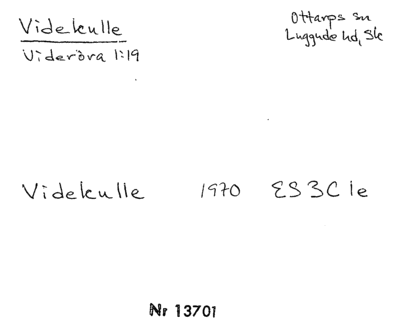 Videkulle
Videröra 1:19
Ottarps sn
Luggude hd, Sk
Videkulle 1970 ES 3C 1e
Nr 13701